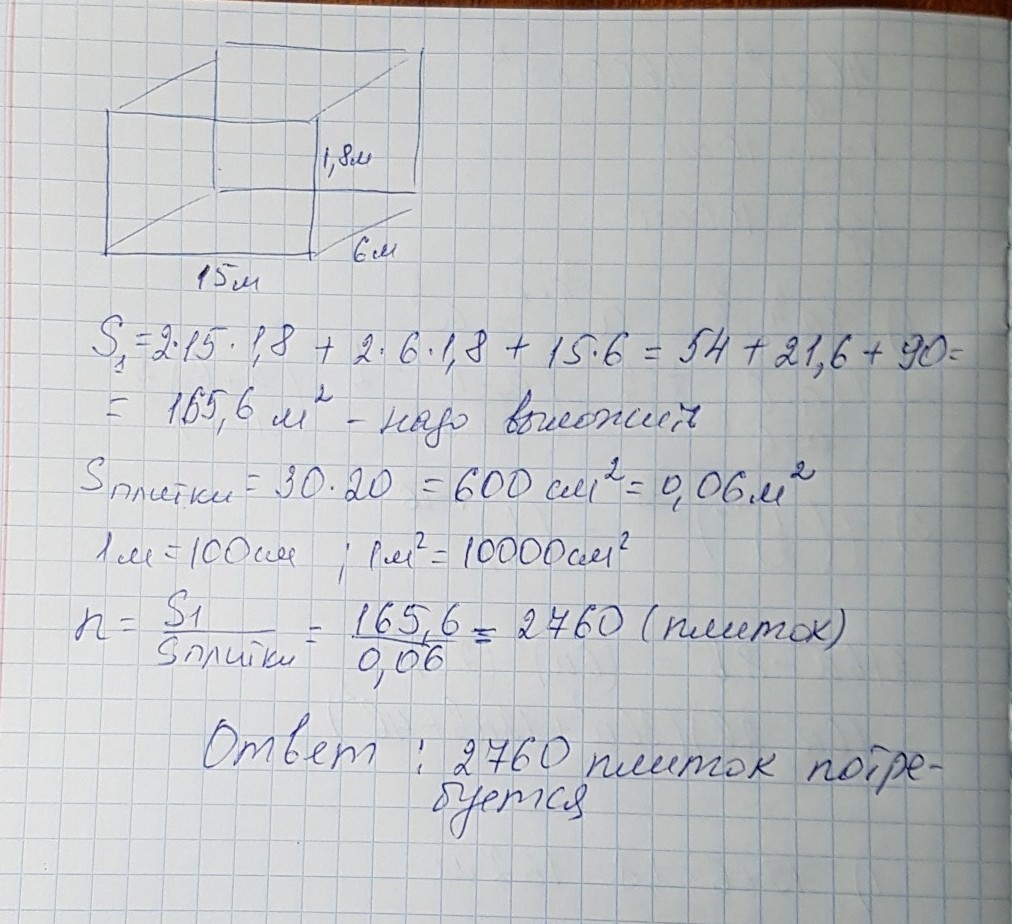 1,8м
6м
15м
S₁=2·15·1,8 + 2·6·1,8 + 15·6 = 54 + 21,6 + 90=
= 165,6 м² - надо выложить
Sплитки = 30·20 = 600 см² = 0,06м²
1м=100см ; 1м²=10000см²
n = S1/Sплитки = 165,6/0,06 = 2760 (плиток)
Ответ : 2760 плиток потре-
буется